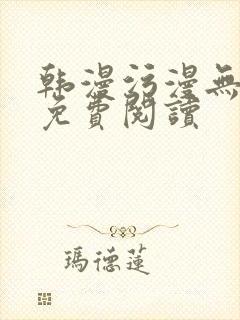 韩漫污漫無
免費閱讀
瑪德蓮